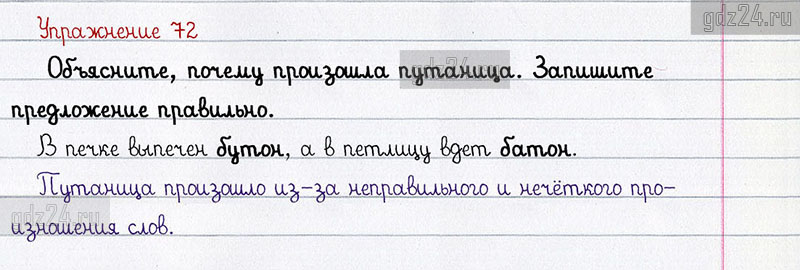 gdz24.ru
Упражнение 72
Объясните, почему произошла путаница. Запишите
предложение правильно.
В печке выпечен бутон, а в петлицу вдет батон.
Путаница произошло из-за неправильного и нечёткого про-
изношения слов.
gdz24.ru